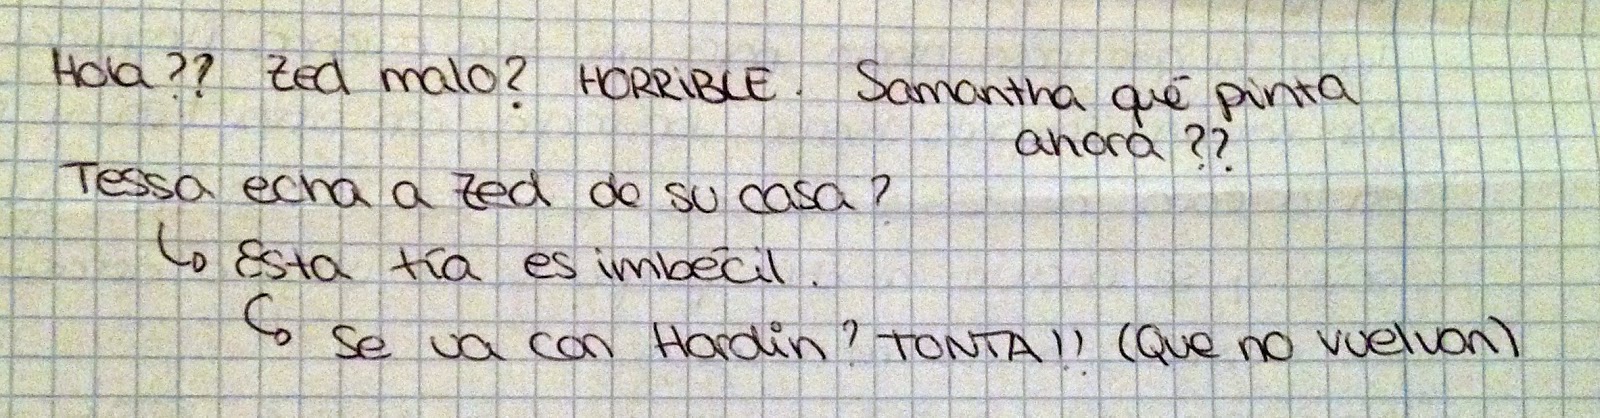 Hola?? Zed malo? HORRIBLE. Samantha qué pinta
ahora??
Tessa echa a Zed de su casa?
↳ Esta tía es imbécil.
↳ Se va con Hardin? TONTA!! (Que no vuelvan)